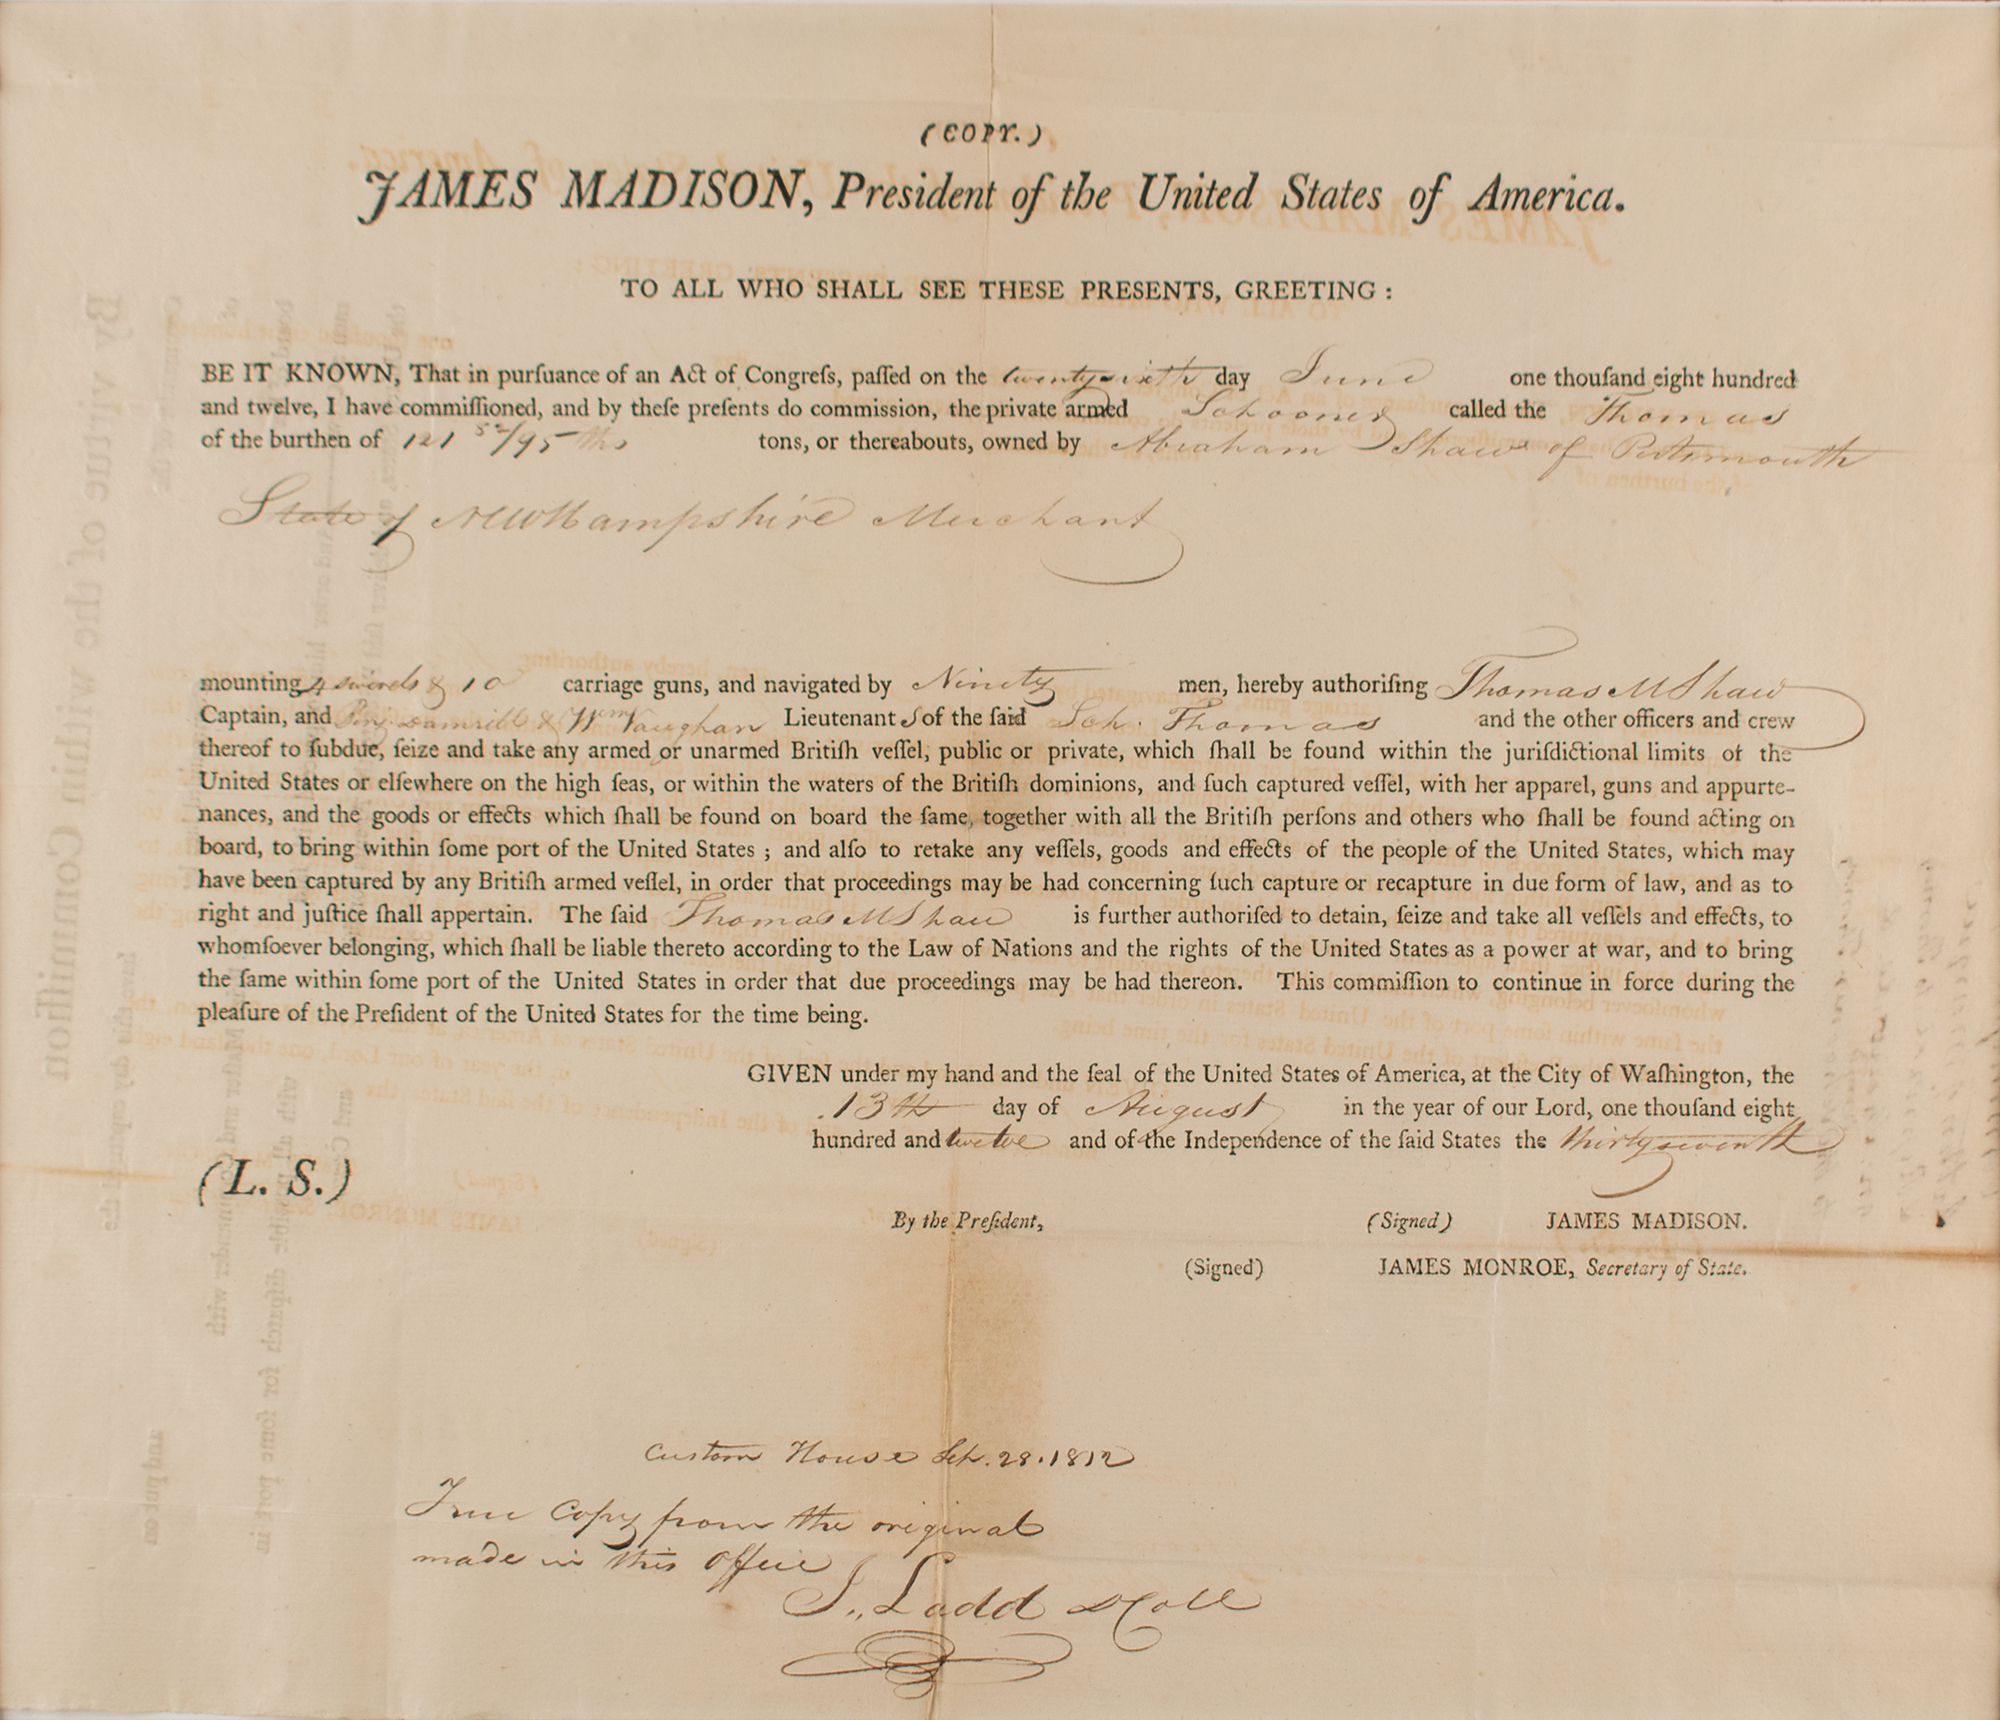 (COPY.)
JAMES MADISON, President of the United States of America.
TO ALL WHO SHALL SEE THESE PRESENTS, GREETING :
BE IT KNOWN, That in purſuance of an Act of Congreſs, paſſed on the twenty sixth day June one thouſand eight hundred
and twelve, I have commiſſioned, and by theſe preſents do commission, the private armed Schooner called the Thomas
of the burthen of 121 52/95ths tons, or thereabouts, owned by Abraham Shaw of Portsmouth
State of NewHampshire Merchant
mounting 4 swivels & 10 carriage guns, and navigated by Ninety men, hereby authoriſing Thomas M Shaw
Captain, and Damrill & Wm Vaughan Lieutenant S of the ſaid Sch. Thomas and the other officers and crew
thereof to ſubdue, ſeize and take any armed or unarmed Britiſh veſſel, public or private, which ſhall be found within the juriſdictional limits of the
United States or elſewhere on the high ſeas, or within the waters of the Britiſh dominions, and ſuch captured veſſel, with her apparel, guns and appurte-
nances, and the goods or effects which ſhall be found on board the ſame, together with all the Britiſh perſons and others who ſhall be found acting on
board, to bring within ſome port of the United States ; and alſo to retake any veſſels, goods and effects of the people of the United States, which may
have been captured by any Britiſh armed veſſel, in order that proceedings may be had concerning ſuch capture or recapture in due form of law, and as to
right and juſtice ſhall appertain. The ſaid Thomas M Shaw is further authoriſed to detain, ſeize and take all veſſels and effects, to
whomſoever belonging, which ſhall be liable thereto according to the Law of Nations and the rights of the United States as a power at war, and to bring
the ſame within ſome port of the United States in order that due proceedings may be had thereon. This commiſſion to continue in force during the
pleaſure of the Preſident of the United States for the time being.
GIVEN under my hand and the ſeal of the United States of America, at the City of Waſhington, the
13th day of August in the year of our Lord, one thouſand eight
hundred and twelve and of the Independence of the ſaid States the thirty seventh
(L. S.)
By the Preſident, (Signed) JAMES MADISON.
(Signed) JAMES MONROE, Secretary of State.
Custom House Sep. 28. 1812
True Copy from the original
made in this Office
J. Ladd D Coll